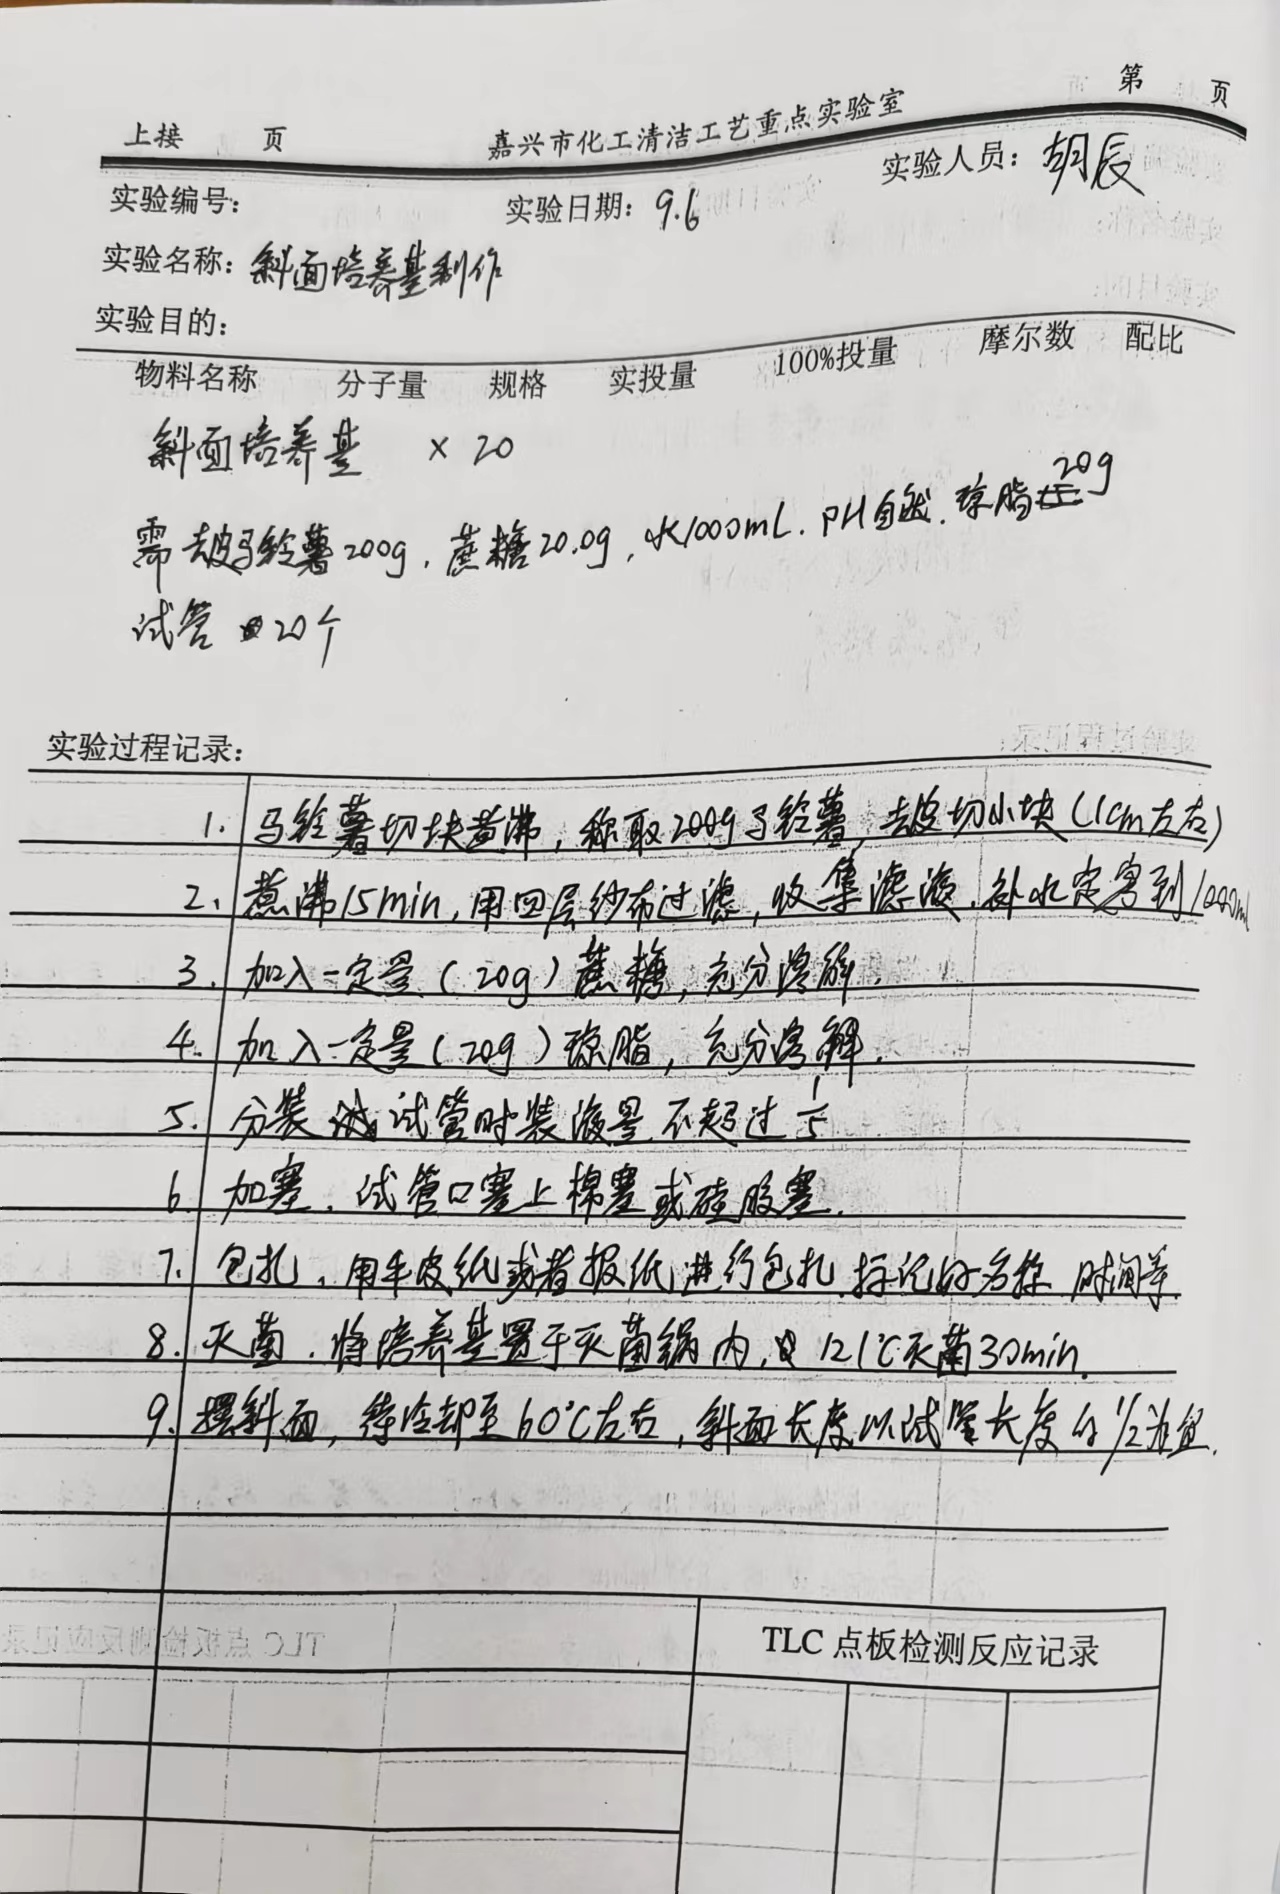 第 页
上接 页 嘉兴市化工清洁工艺重点实验室
实验编号: 实验日期: 9.6 实验人员: 胡辰
实验名称: 斜面培养基制作
实验目的:
物料名称 分子量 规格 实投量 100%投量 摩尔数 配比
斜面培养基 ×20
需 去皮马铃薯200g, 蔗糖20.0g, 水1000mL. PH自然. 琼脂20g
试管 20个
实验过程记录:
1. 马铃薯切块煮沸, 称取200g马铃薯, 去皮切小块(1cm左右)
2. 煮沸15min, 用四层纱布过滤, 收集滤液, 补水定容到1000ml
3. 加入一定量(20g)蔗糖, 充分溶解.
4. 加入一定量(20g)琼脂, 充分溶解.
5. 分装 试管时装液量不超过1/5
6. 加塞. 试管口塞上棉塞或硅胶塞.
7. 包扎, 用牛皮纸或者报纸进行包扎. 标记好名称 时间等
8. 灭菌. 将培养基置于灭菌锅内, 121℃灭菌30min.
9. 摆斜面, 待冷却至60℃左右, 斜面长度以试管长度的1/2为宜.
TLC 点板检测反应记录